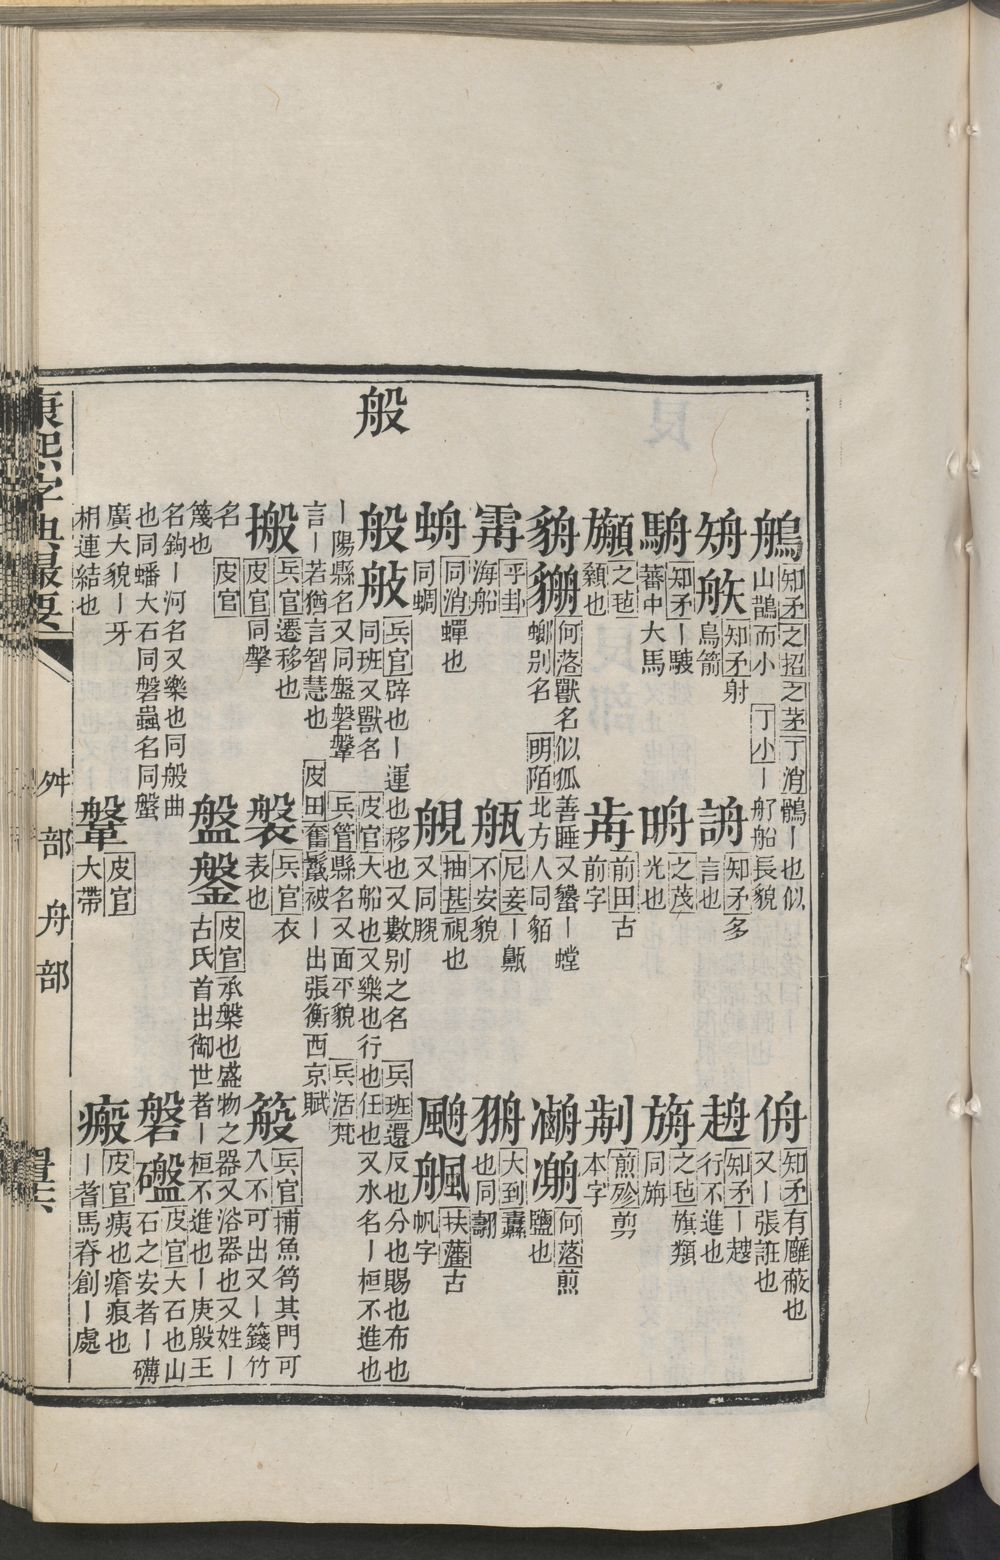 般
鵃 知矛之招之茎丁消鶻丨也似山鵲而小丁小丨䑠船長貌
侜 知矛有廱蔽也又丨張誑也
知矛射鳥箭
輈 知矛多言也
知矛丨趤行不進也
知矛丨駿蕃中大馬
之茂光也
之毡旗類同旃
之毡類也
前田古前字
煎殄剪本字
何落獸名似狐善睡又蠻丨螳螂別名明陌北方人同貊
何落煎鹽也
乎卦海船
瓵 尼妾丨甈不安貌
大到纛也同翿
同消蟬也同蜩
抽甚視也又同䑣
扶藩古帆字
般 兵官辟也丨運也移也又數別之名兵班還反也分也賜也布也同班又獸名皮官大船也又樂也行也任也又水名丨桓不進也
丨陽縣名又同盤磐鞶兵管縣名又面平貌兵活梵言丨若猶言智慧也皮田奮鬣被丨出張衡西京賦
搬 兵官遷移也皮官同搫
褩 兵官衣表也
䈲 兵官捕魚笱其門可入不可出又丨籛竹名皮官籛也
盤鎜 皮官承槃也盛物之器又浴器也又姓丨古氏首出御世者丨桓不進也丨庚殷王名鉤丨河名又樂也同般曲也同蟠大石同磐蟲名同螌
磐磻 皮官大石也山石之安者丨礴廣大貌丨牙相連結也
鞶 皮官大帶
瘢 皮官痍也瘡痕也丨耆馬脊創丨處
康熙字典撮要
舛部舟部